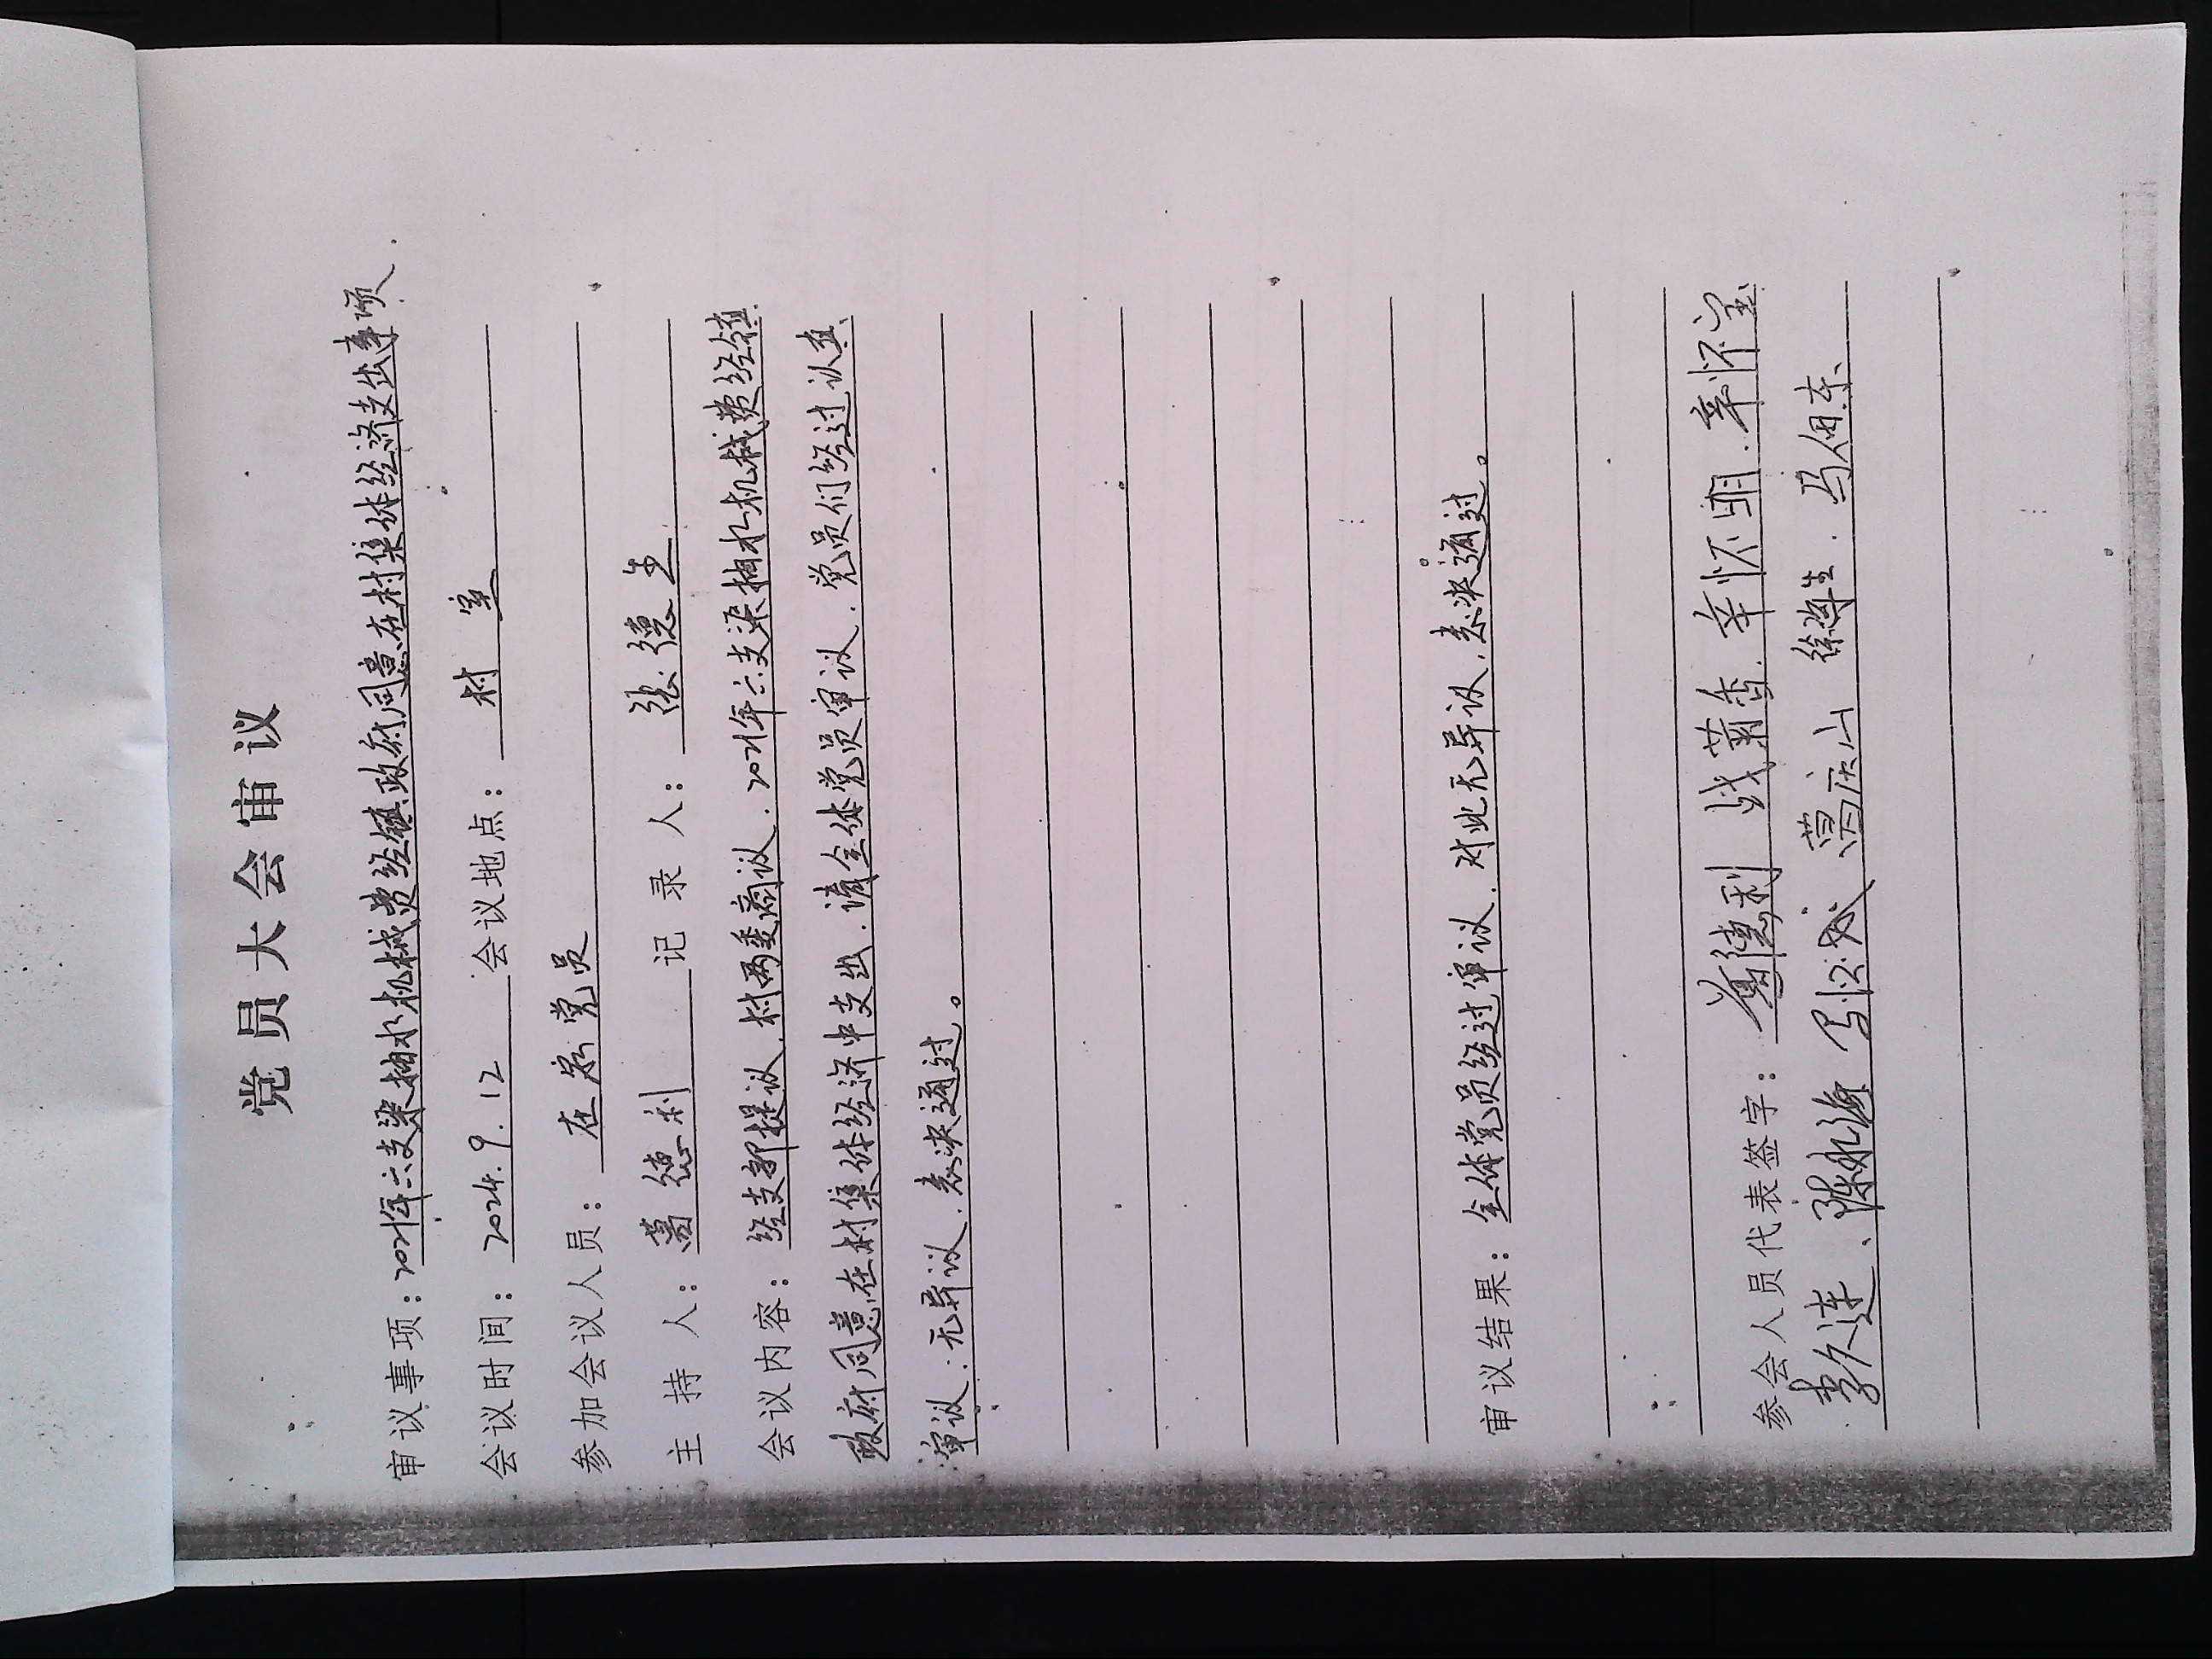 党员大会审议
审议事项：2021年六支渠抽水机械费经镇政府同意在村集体经济支出事项.
会议时间：2024.9.12 会议地点：村室
参加会议人员：在家党员
主持人：葛德利 记录人：张德生
会议内容：经支部提议.村两委商议.2021年六支渠抽水机械费经镇
政府同意在村集体经济中支出.请全体党员审议.党员们经过认真
审议：无异议.表决通过。
审议结果：全体党员经过审议.对此无异议.表决通过。
参会人员代表签字：葛德利 战菊香.辛怀明.辛怀宝
李久连、陈永海 葛庆山 徐学生.马佰东